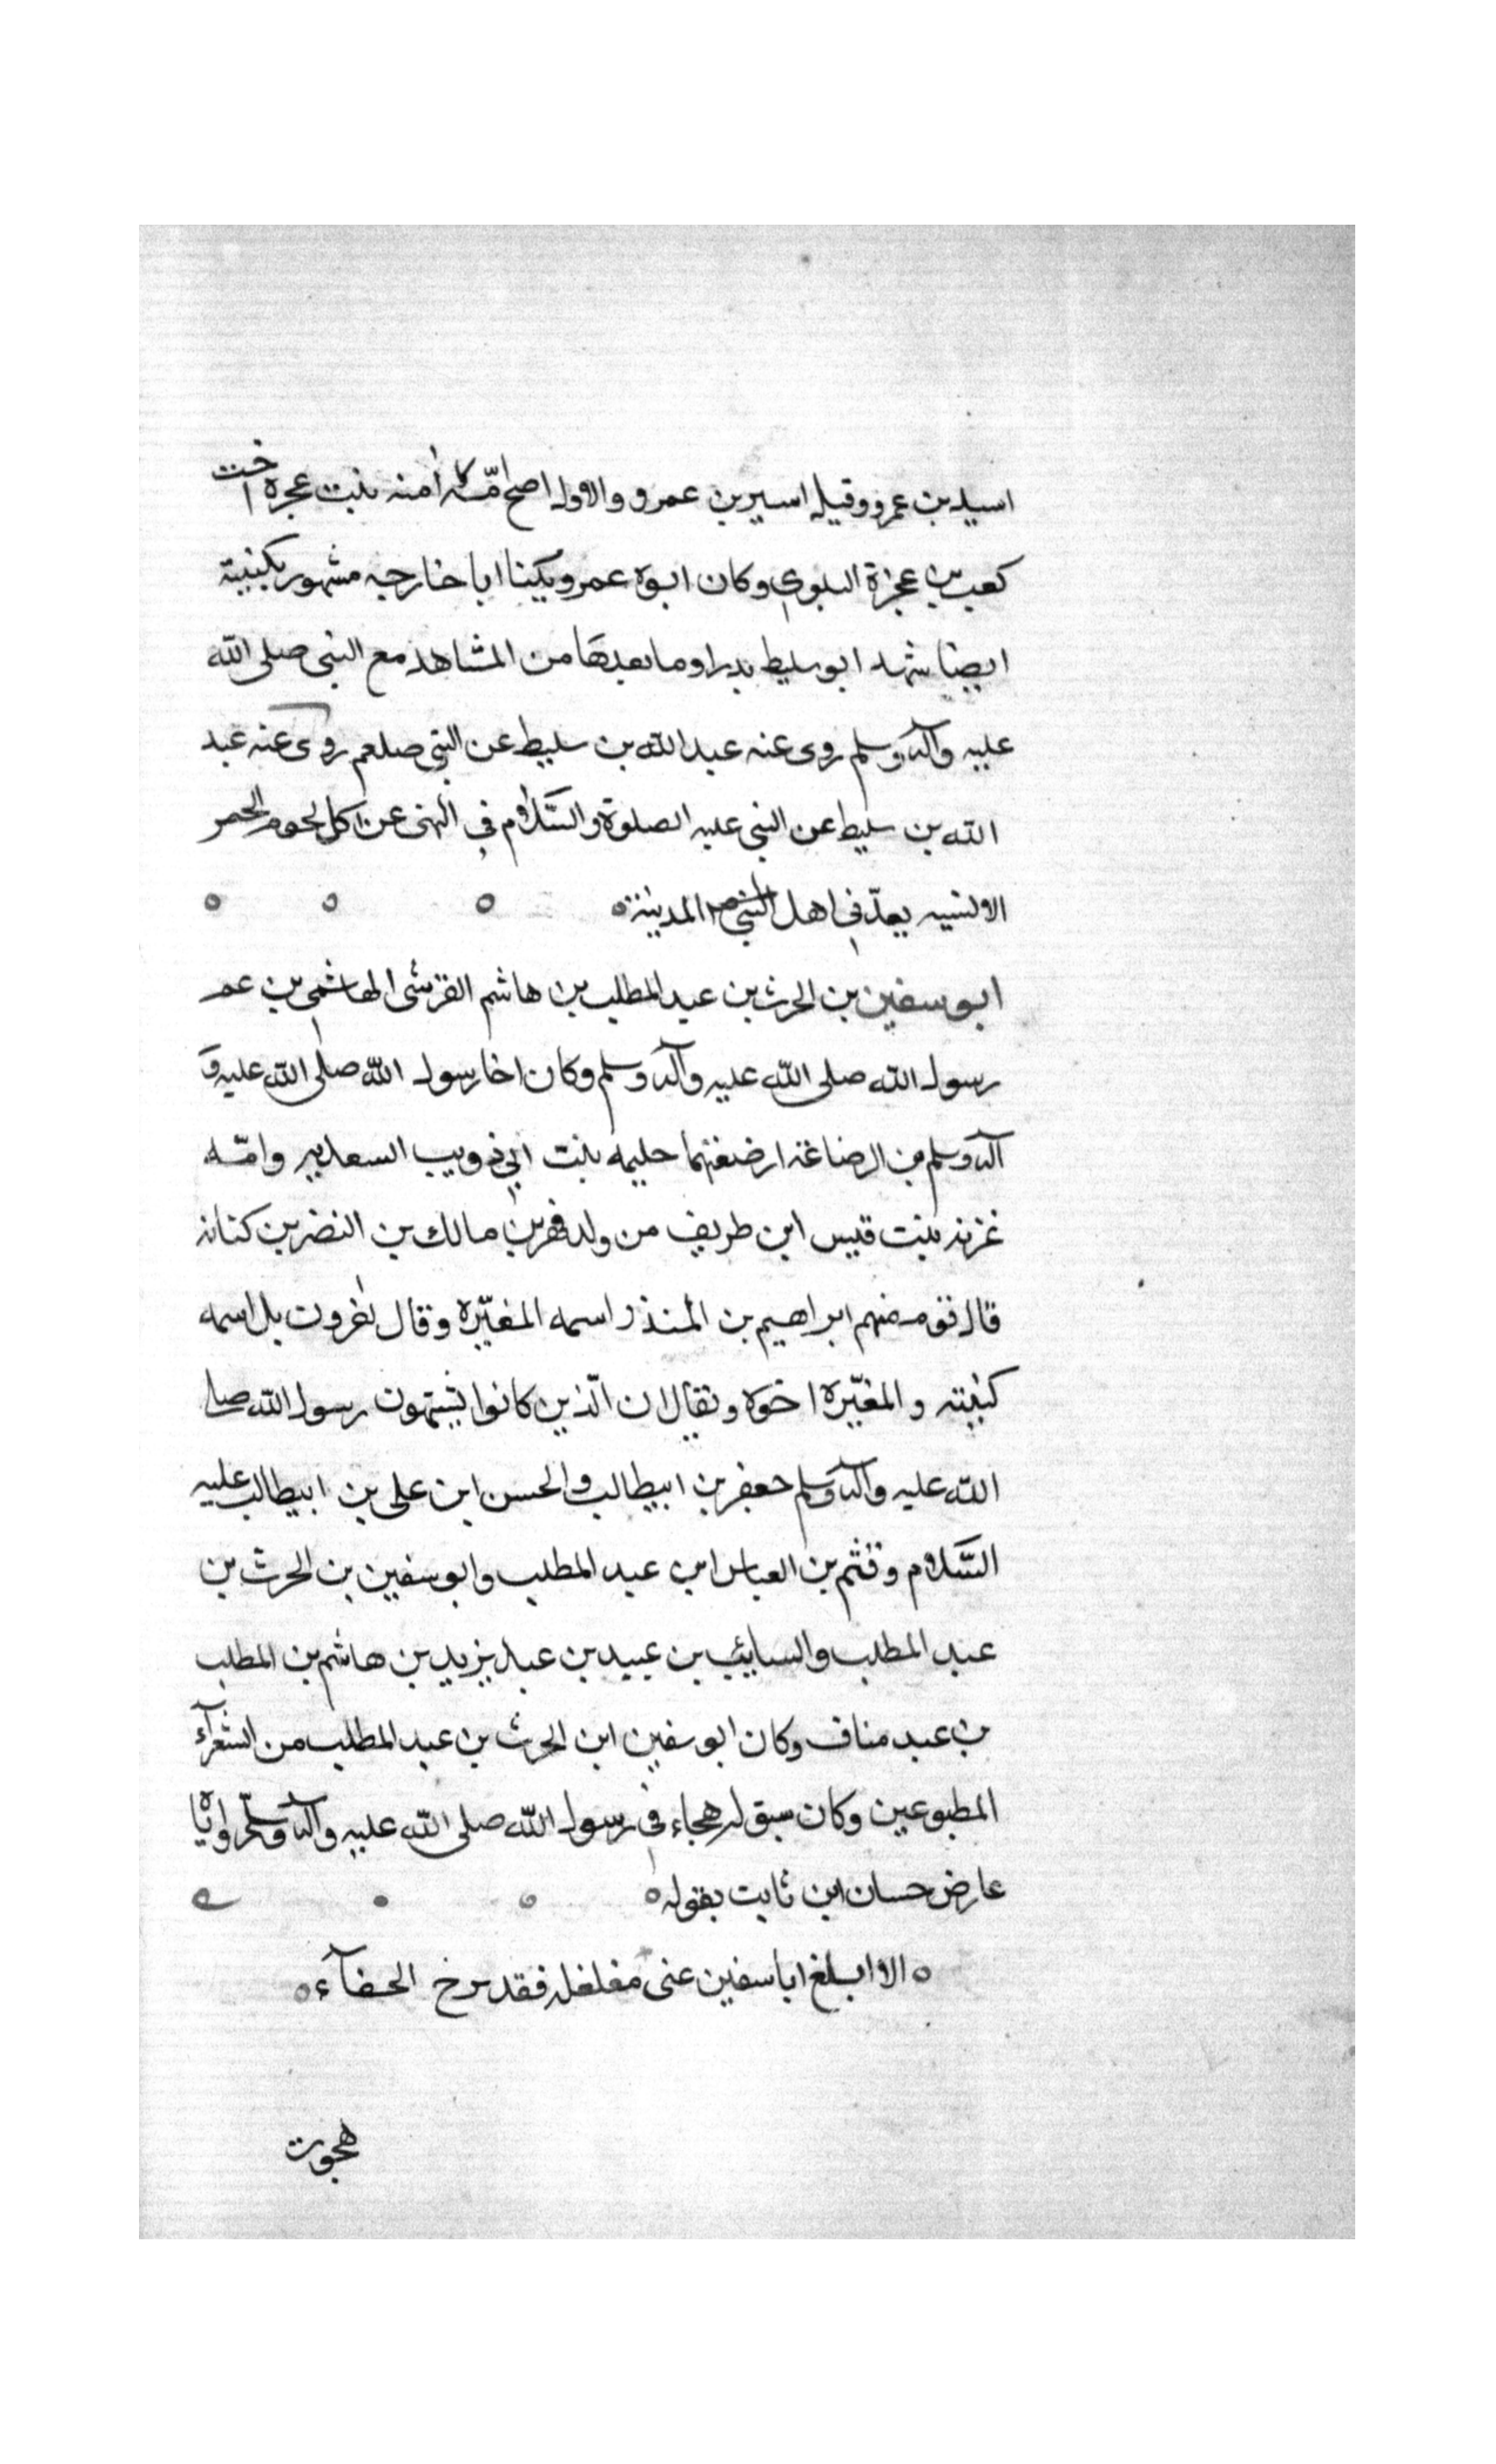 اسيد بن عمرو وقيل اسير بن عمرو والاول اصح امه آمنه بنت عجرة اخت
كعب بن عجزة البلوي وكان ابوه عمرو يكينا ابا خارجه مشهور بكنيته
ايضا شهد ابو سليط بدرا وما بعدها من المشاهد مع النبى صلى الله
عليه وآله وسلم روى عنه عبد الله بن سليط عن النبي صلعم روى عنه عبد
الله بن سليط عن النبي عليه الصلوة والسّلام في النهى عن اكل لحوم الحمر
الانسيه يعدّ في اهل المدينة
ابو سفين بن الحرث بن عبد المطلب بن هاشم القرشى الهاشمي بن عم
رسول الله صلى الله عليه وآله وسلم وكان اخا رسول الله صلى الله عليه و
آله وسلم من الرضاعة ارضعتهما حليمه بنت ابي ذويب السعديه وامّه
غزنه بنت قيس ابن طريف من ولد فهر بن مالك بن النضر بن كنانه
قال قوم منهم ابراهيم بن المنذر اسمه المغيّره وقال اخرون بل اسمه
كنيته والمغيّره اخوه ويقال ان الّذين كانوا يشبهون رسول الله صلى
الله عليه وآله وسلم جعفر بن ابيطالب والحسن ابن على بن ابيطالب عليه
السّلام وقثم بن العباس ابن عبد المطلب وابو سفين بن الحرث بن
عبد المطلب والسايب بن عبيد بن عبد يزيد بن هاشم بن المطلب
بن عبد مناف وكان ابو سفين ابن الحرث بن عبد المطلب من الشعرآء
المطبوعين وكان سبق له هجاء في رسول الله صلى الله عليه وآله وسلّم واياه
عارض حسان ابن ثابت بقوله
الا ابلغ ابا سفين عنى مغلغله فقد برخ الحفآء
هجوت